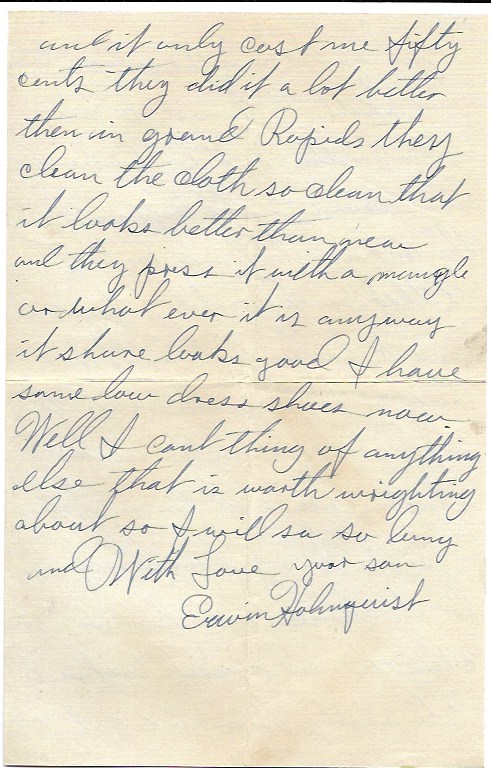 and it only cost me fifty
cents they did it a lot better
then in grand Rapids they
clean the cloth so clean that
it looks better than new
and they press it with a mangle
or what ever it is anyway
it shure looks good I have
some low dress shoes now
Well I cant thing of anything
else that is worth wrighting
about so I will sa so long
and With Love your son
Erwin Holmquist